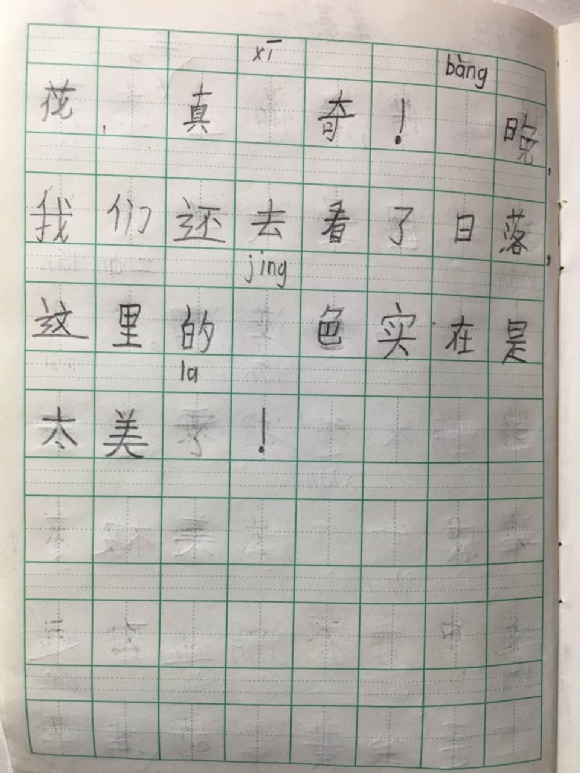 xī bàng
花，真奇！晚，
我们还去看了日落，
jing
这里的色实在是
la
太美了！